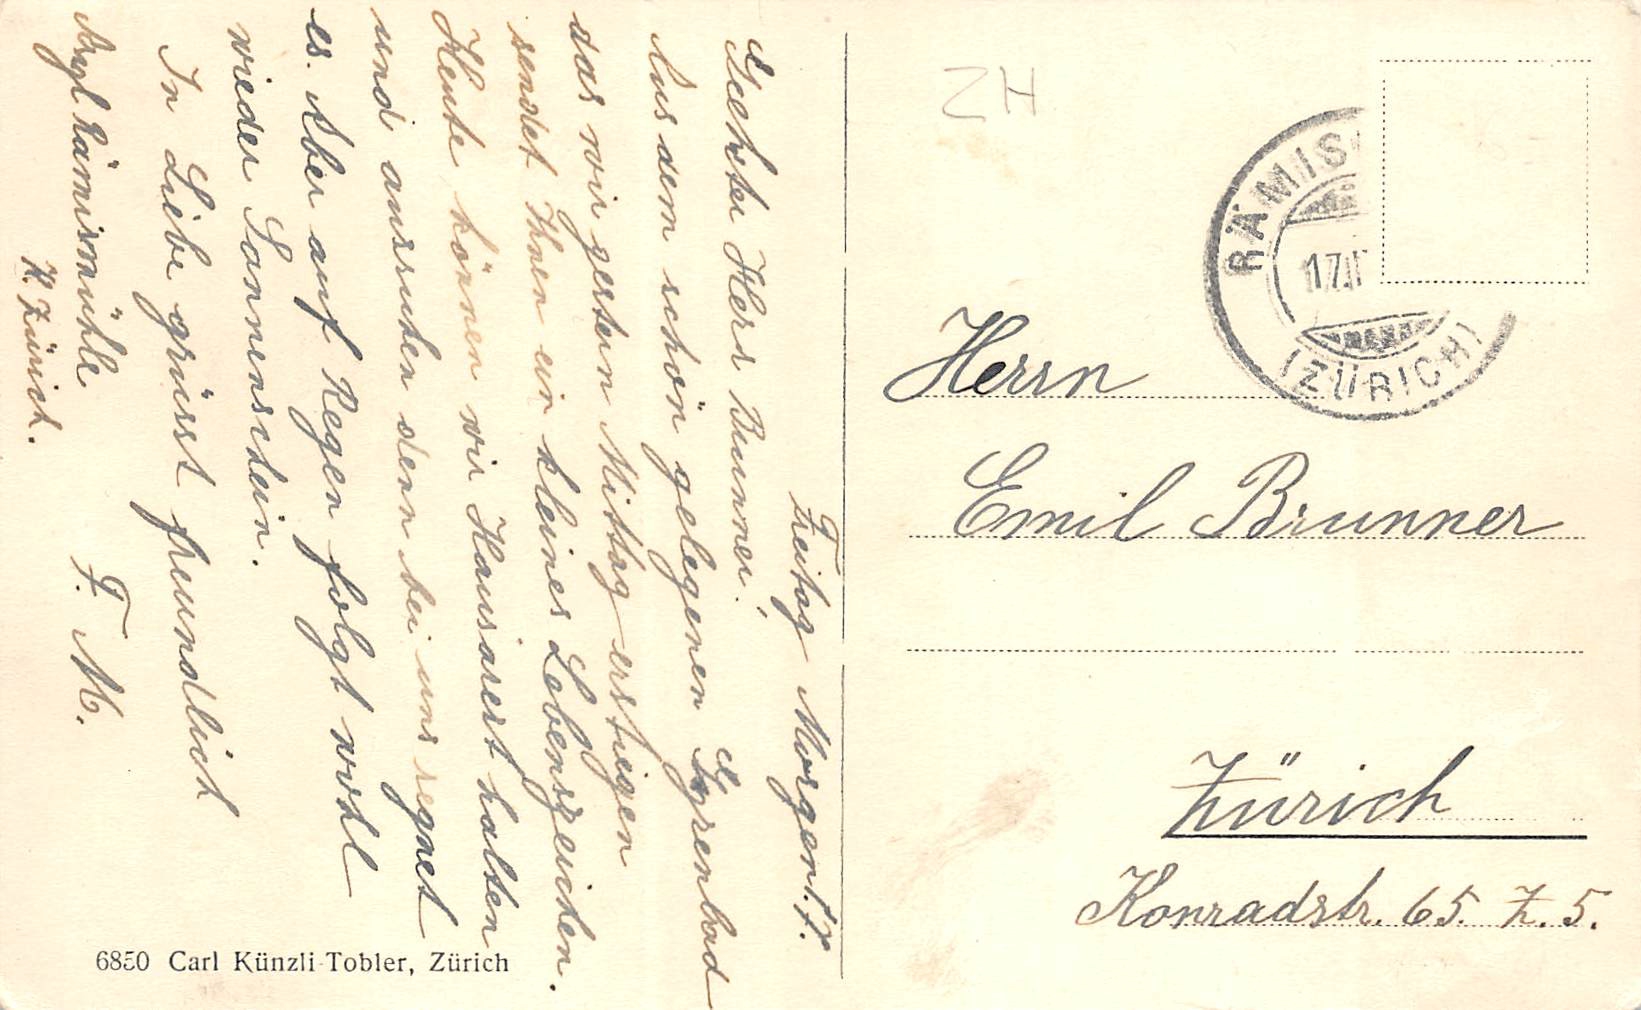 Freitag Morgen. 17.
Geehrter Herr Brunner!
Aus dem schön gelegenen Gyrenbad
das wir gestern Mittag erstiegen
sendet Ihnen ein kleines Lebenszeichen.
Heute können wir Hausarrest halten
und ausruhen denn bei uns regnet
es. Aber auf Regen folgt wohl
wieder Sonnenschein.
In Liebe grüsst freundlich
F. M.
Asyl Rämismühle
K. Zürich.
6850 Carl Künzli-Tobler, Zürich
ZH
RÄMIS
17.
(ZÜRICH)
Herrn
Emil Brunner
Zürich
Konradstr. 65. Z. 5.